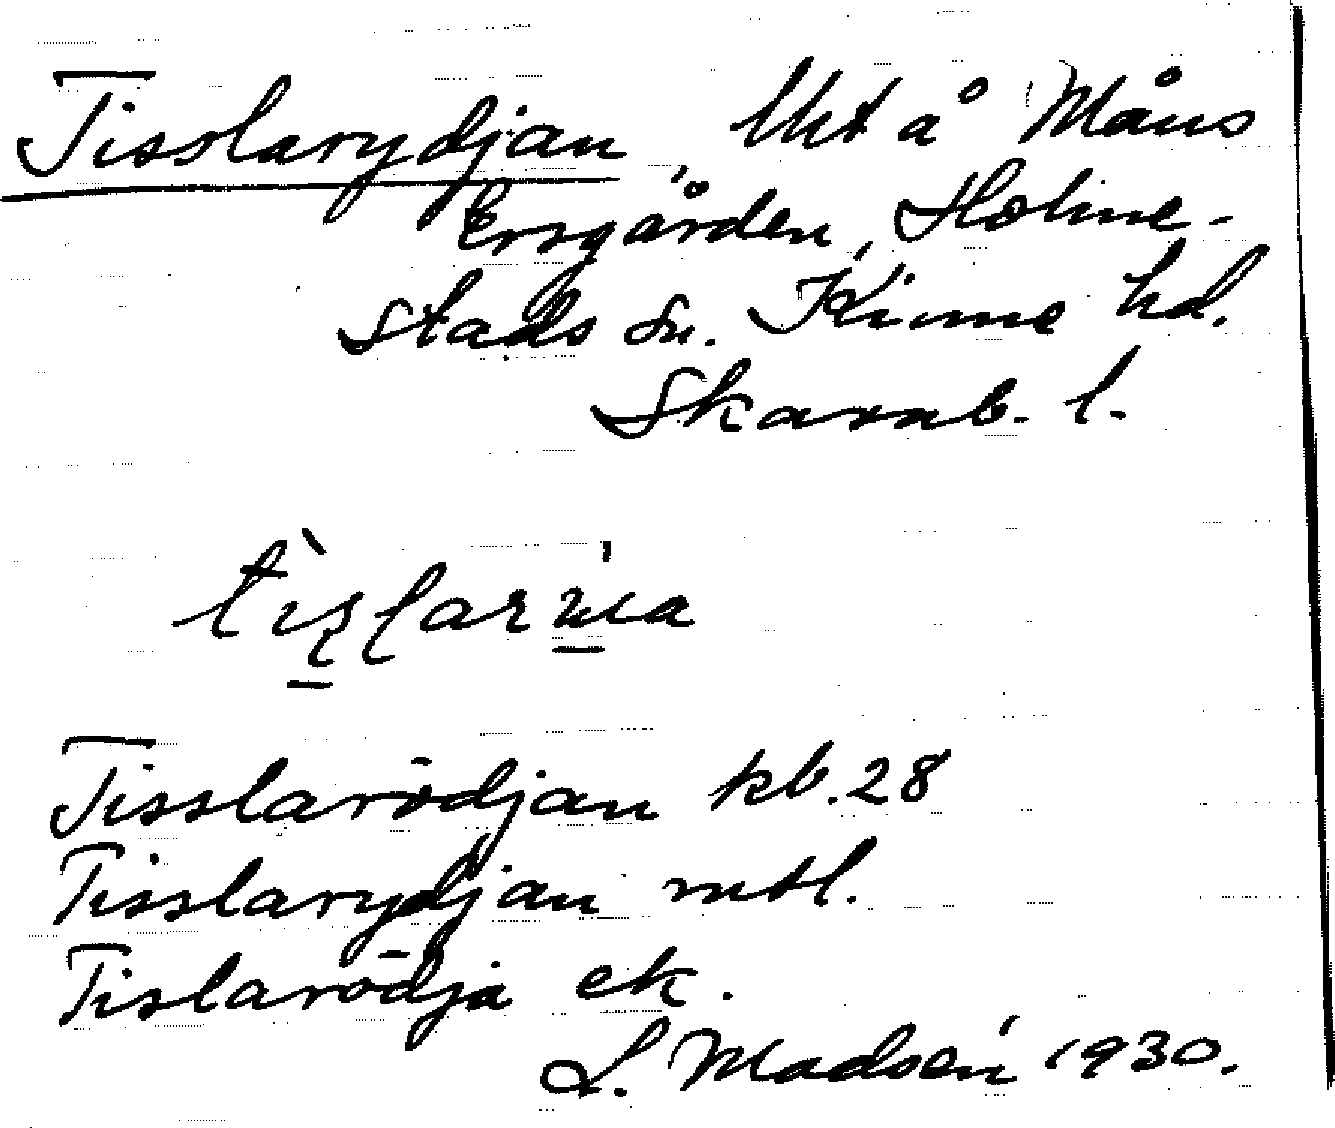 Tisslarydjan, Ukt å Måns
Ersgården, Holme-
stads sn. Kinne hd.
Skarab. l.
Tisslarödjan kb. 28
Tisslarydjan mtl.
Tislarödja ek.
L. Madsén 1930.